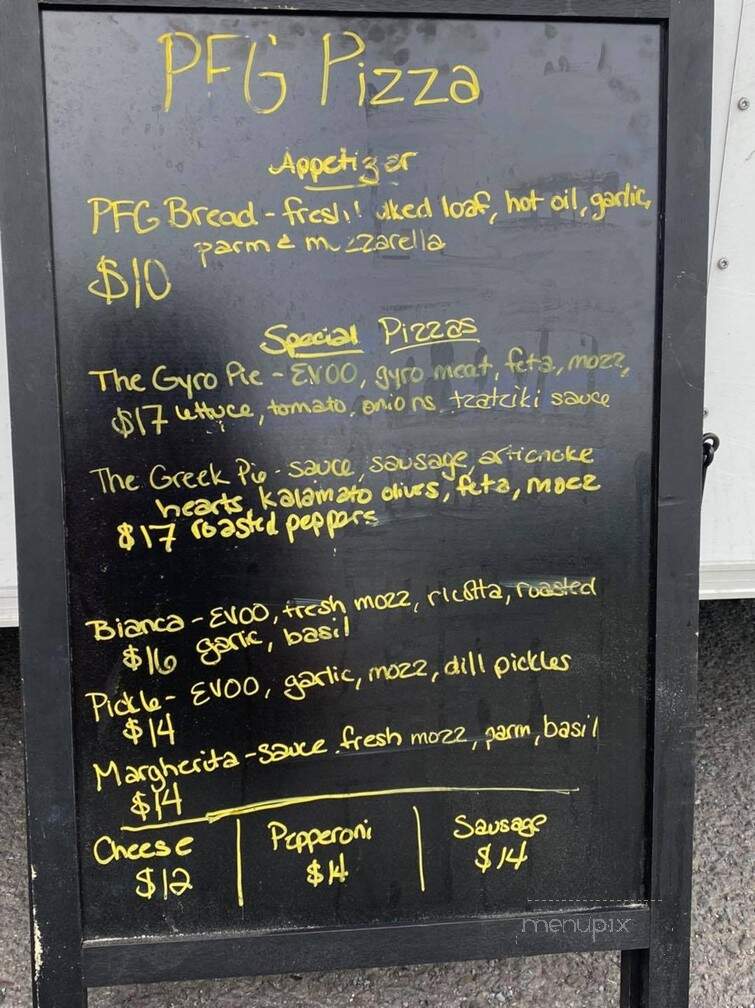 PFG Pizza
Appetizer
PFG Bread - hot oil, garlic,
parm &
$10
Special Pizzas
The Gyro Pie - EVOO, gyro meat, feta, mozz,
$17 lettuce, tomato, onions tzatziki sauce
The Greek Pie - sauce, sausage, artichoke
hearts, kalamato olives, feta, mozz
$17 roasted peppers
Bianca - EVOO, fresh mozz, ricotta, roasted
$16 garlic, basil
Pickle - EVOO, garlic, mozz, dill pickles
$14
Margherita - sauce, fresh mozz, parm, basil
$14
Cheese
$12
Pepperoni
$14
Sausage
$14
menupix